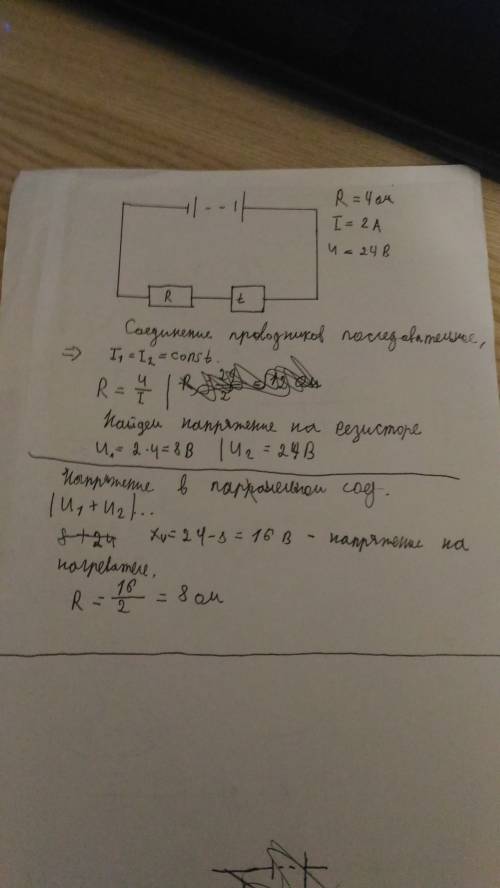 R = 4 ом
I = 2 А
U = 24 В
R
t
Соединение проводников последовательное,
⇒ I₁ = I₂ = const.
R = U/I |
Найдем напряжение на резисторе
U₁ = 2·4 = 8 В | U₂ = 24 В
Напряжение в соед.
|U₁ + U₂|..
8 + 24 Xᵤ = 24 - 8 = 16 В - напряжение на
нагревателе.
R = 16/2 = 8 ом